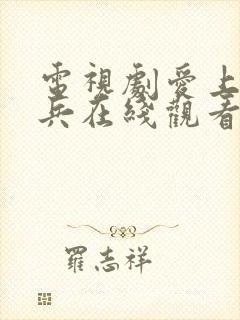 電視劇愛上
兵在綫觀看
羅志祥